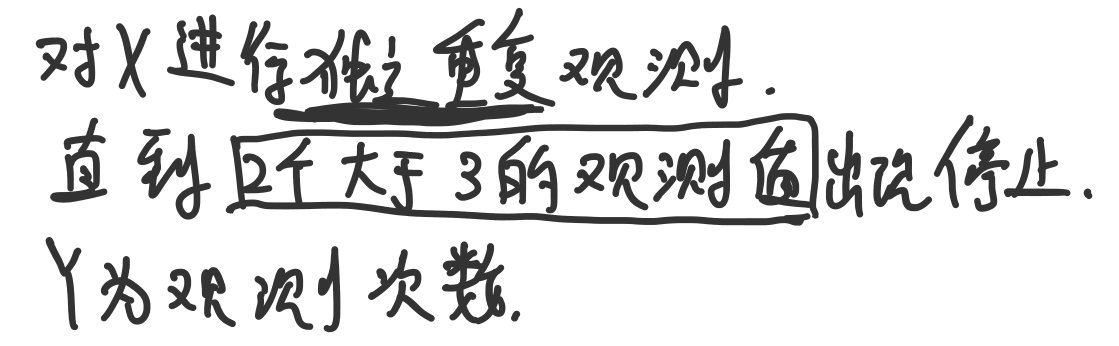 对X进行独立重复观测.
直到2个大于3的观测值出现停止.
Y为观测次数.